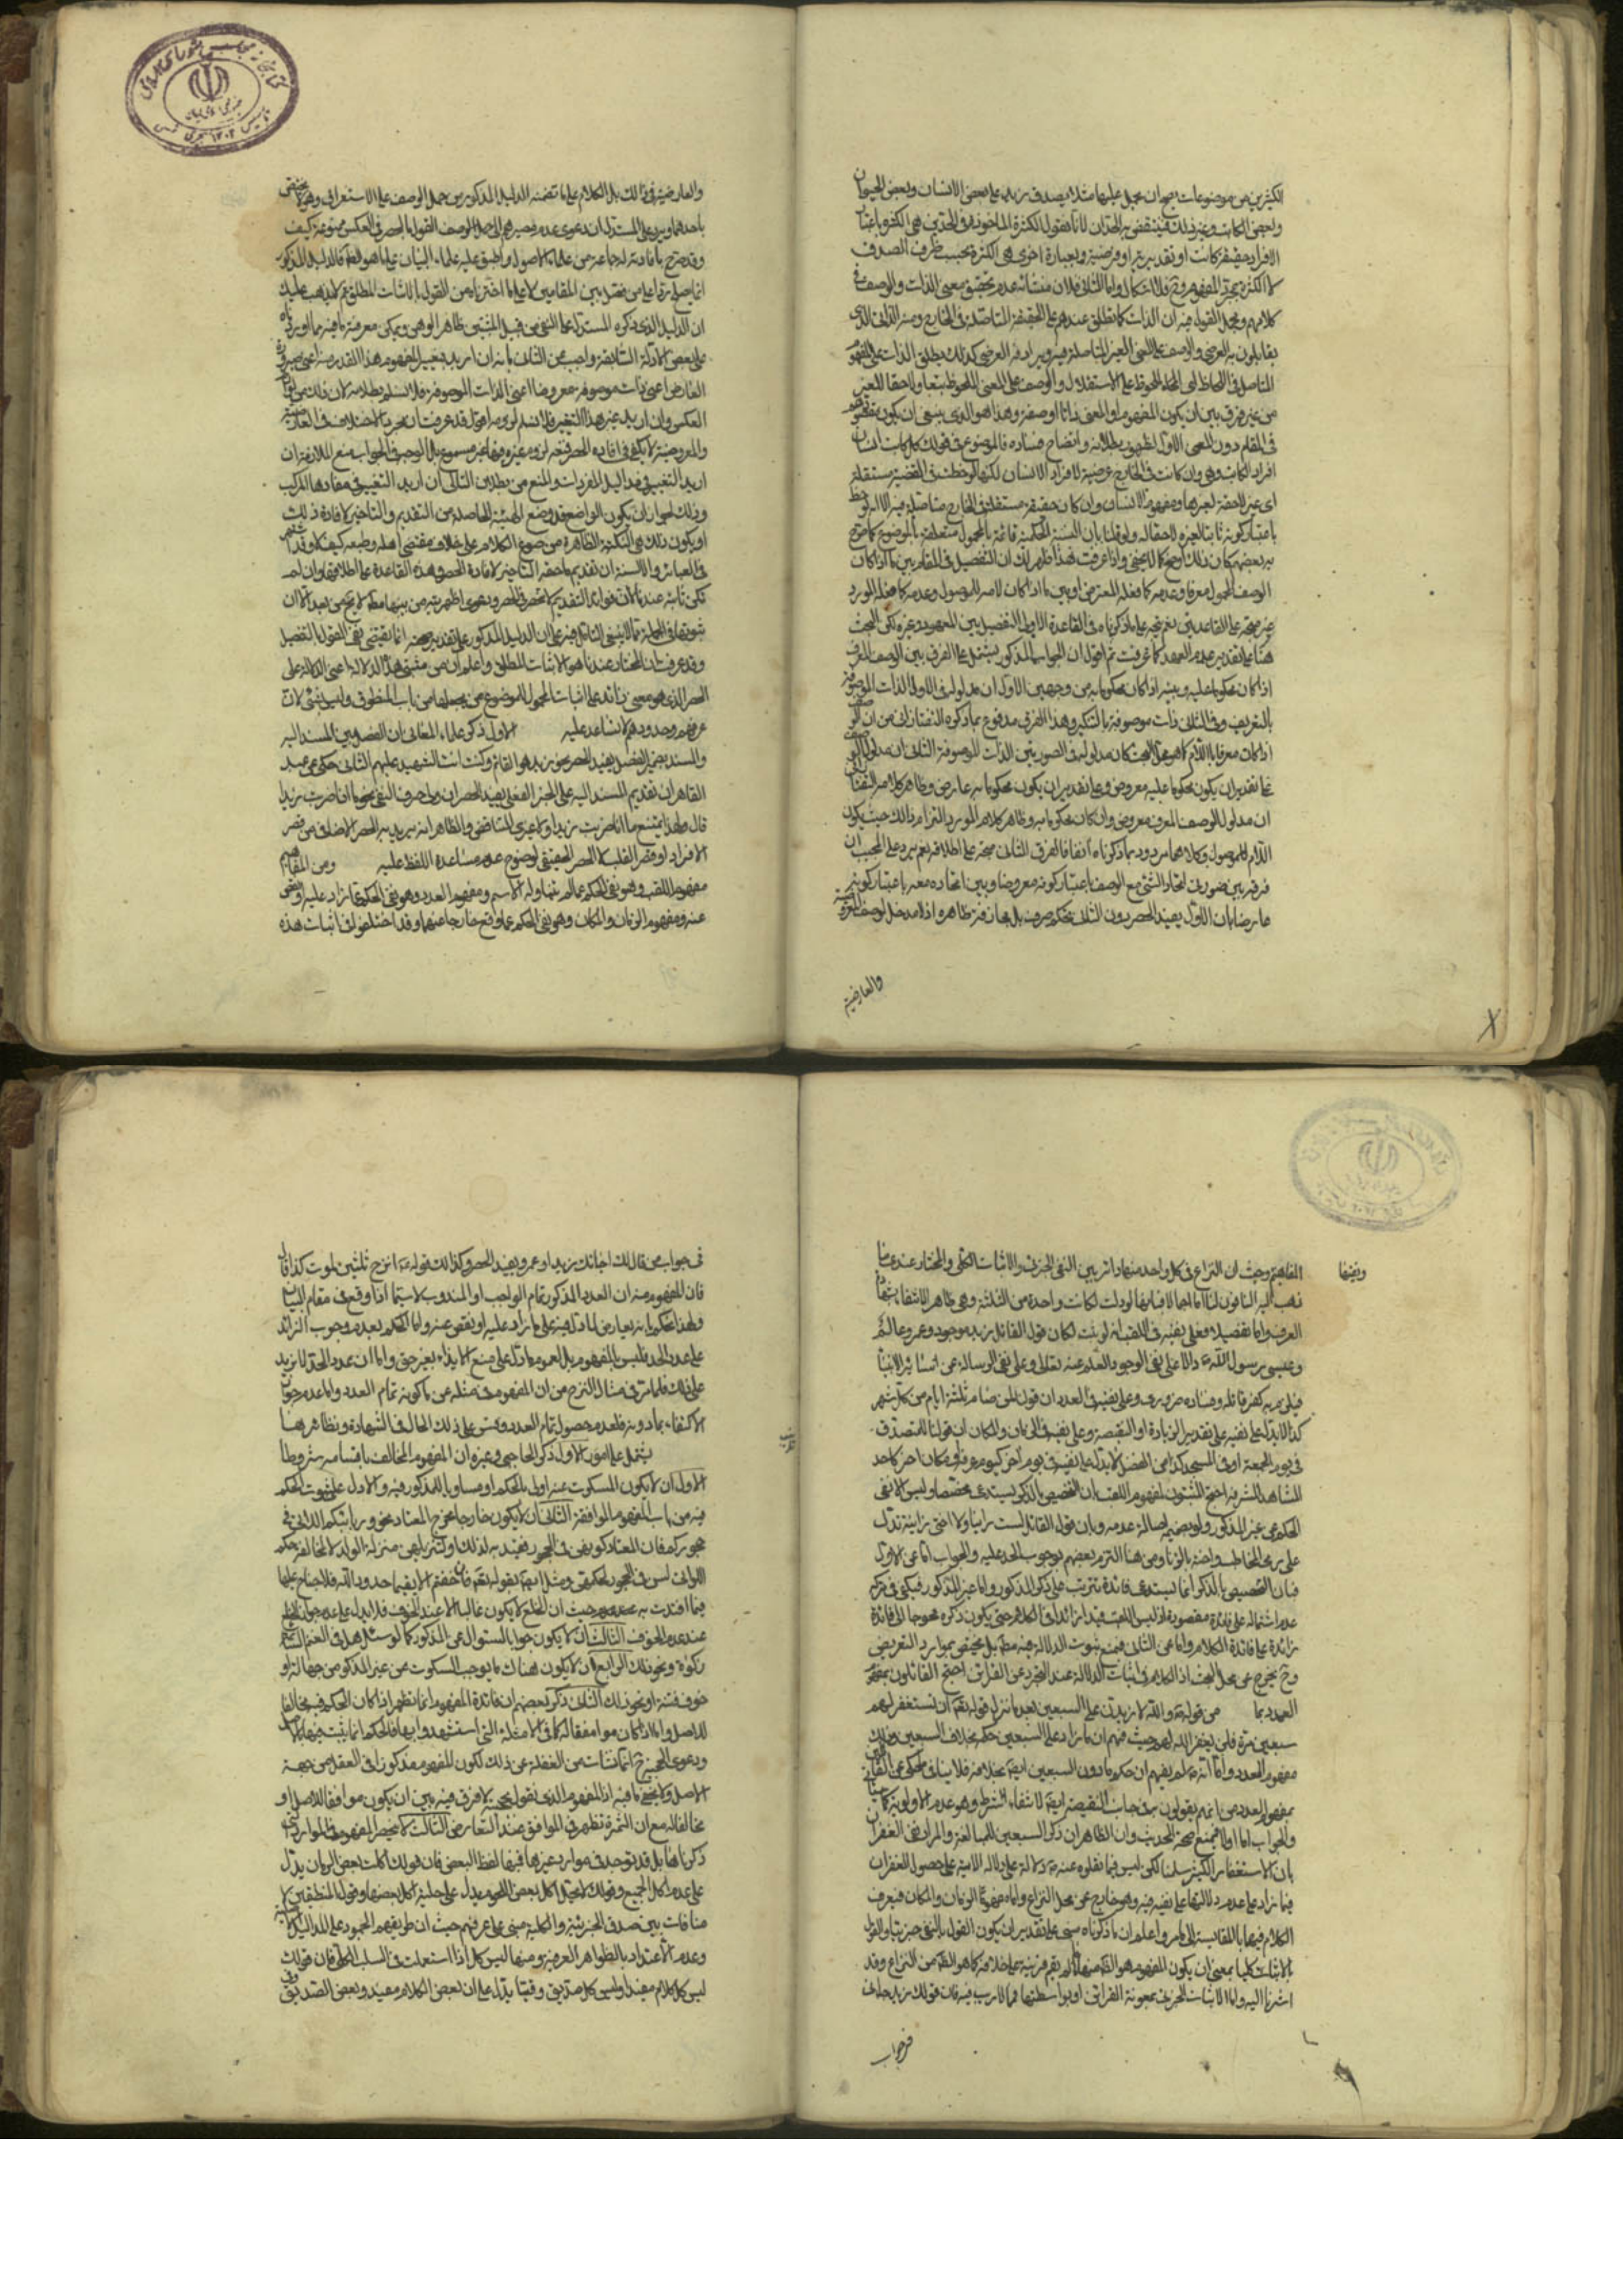 الكثيرين من موضوعات يصح ان يحمل عليها مثلا يصدق زيد على بعض الانسان وبعض الحيوان
وبعض الكاتب وغير ذلك فينتقض به الحدان لانا نقول الكثرة الماخوذة في الحدين هي الكثرة باعتبار
الافراد حقيقة كانت او تقديرية او فرضية وبعبارة اخرى هي الكثرة بحسب ظرف الصدق
لا الكثرة بحسب المفهوم وح فلا اشكال واما الثاني فلان منشائه عدم تحقيق معنى الذات والوصف في
كلامهم ومجمل القول فيه ان الذات كما تطلق عندهم على الحقيقة المتاصلة في الخارج ومنه الذاتي الذي
يقابلون به العرضي والوصف على المعنى الغير المتاصل فيه ويرادفه العرضي كذلك يطلق الذات على المفهوم
المتاصل في اللحاظ اعني الملحوظ على الاستقلال والوصف على المعنى الملحوظ تبعا ولاحقا للغير
من غير فرق بين ان يكون المفهوم او المعنى ذاتا او صفة وهذا هو الذي ينبغي ان يكون مقصودهم
في المقام دون المعنى الاول لظهور بطلانه واتضاح فساده فالموضوع في قولك كل كاتب انسان
افراد الكاتب وهي وان كانت في الخارج عرضية لافراد الانسان لكنها لوحظت في القضية مستقلة
اي غير لاحقة لغيرها ومفهوم الانسان وان كان حقيقة مستقلة في الخارج متاصلة فيه الا انه لوحظ
باعتبار كونه ثابتا لغيره لاحقا له ولو قلنا بان النسبة الحكمية قائمة بالمحمول متعلقة بالموضوع كما صرح
به بعضهم كان ذلك اوضح كما لا يخفى واذا عرفت هذا ظهر لك ان التفصيل في المقام بين ما اذا كان
الوصف المحمول معرفا وعدمه كما فعله المعترض او بين ما اذا كان للموصول وعدمه كما فعله المورد
غير متجه على القاعدتين نعم يتجه على ما ذكرناه في القاعدة الاولى التفصيل بين المعهود وغيره لكن البحث
هنا على تقدير عدم العهد كما عرفت ثم اقول ان الجواب المذكور يشتمل على الفرق بين الوصف المعرف
اذا كان محكوما عليه وبينه اذا كان محكوما به من وجهين الاول ان مدلوله في الاول الذات الموصوفة
بالتعريف وفي الثاني ذات موصوفة بالتنكير وهذا الفرق مدفوع بما ذكره التفتازاني من ان الوصف
اذا كان معرفا باللام كما هو محل البحث كان مدلوله في الصورتين الذات الموصوفة الثاني ان مدلول الوصف
على تقدير ان يكون محكوما عليه معروض وعلى تقدير ان يكون محكوما به عارض وظاهر كلام التفتازاني
ان مدلول الوصف المعرف معروض وان كان محكوما به وظاهر كلام المورد التزام ذلك حيث يكون
اللام للموصول وكلاهما مردود بما ذكرناه آنفا فالفرق الثاني متجه على اطلاقه نعم يرد على المجيب ان
فرقه بين ضرورة اتحاد الشئ مع الوصف باعتبار كونه معروضا وبين اتحاده معه باعتبار كونه
عارضا بان الاول يفيد الحصر دون الثاني تحكم صرف بل مجازفة ظاهرة اذ لا مدخل لوصف المعروضية
والعارضية
والعارضية في ذلك بل الكلام على ما تضمنه الدليل المذكور من حمل الوصف على الاستغراق وهو لا يختص
باحدهما ويرد على المستدل ان دعوى عدم مصيرهم الى القول بالحصر في العكس ممنوعة كيف
وقد صرح بافادته له جماعة من علماء الاصول واطبق عليه علماء البيان على ما هو الظ فالدليل المذكور
انما يصلح ردا على من فصل بين المقامين لا على ما اخترناه من القول بالاثبات المطلق ثم لا يذهب عليك
ان الدليل الذي ذكره المستدل على النفي من قبل المثبتين ظاهر الوهن ويمكن معرفة ما فيه مما اوردناه
على بعض الادلة السابقة واجيب عن الثاني بانه ان اريد بتغيير المفهوم هذا القدر منه اعني صيرورة
العارض اعني ذات موصوفة معروضا اعني الذات الموصوفة فلا نسلم بطلانه لان ذلك من لوازم
العكس وان اريد غير هذا التغيير فلا نسلم لزومه اقول قد عرفت ان مجرد الاختلاف في العارضية
والمعروضية لا يكفي في افادة الحصر فمنع لزوم غيره مهنا غير مسموع بل الوجه في الجواب منع الملازمة ان
اريد التغيير في مداليل المفردات والمنع من بطلان التالي ان اريد التغيير في مفادها المركب
وذلك لجواز ان يكون الواضع قد وضع الهيئة الحاصلة من التقديم والتاخير لافادة ذلك
او يكون ذلك هي النكتة الظاهرة من صوغ الكلام على خلاف مقتضى اصله وطبعه كيف لا وقد اشتهر
في العبائر والالسنة ان تقديم ما حقه التاخير لافادة الحصر وهذه القاعدة على اطلاقها وان لم
تكن ثابتة عندنا لان فوائد التقديم لا تنحصر في الحصر ودعوى اظهريته من بينها مط لا يخ من بعد الا ان
ثبوتها في الجملة مما لا ينبغي التامل فيه على ان الدليل المذكور على تقدير صحته انما يقتضي نفي القول بالتفصيل
وقد عرفت ان المختار عندنا هو الاثبات المطلق واعلم ان من مثبتي هذه الدلالة اعني الدلالة على
الحصر الذي هو معنى زائد على اثبات المحمول للموضوع من يجعلها من باب المنطوق وليس بشئ لان
عرفهم وحدودهم لا تساعد عليه الاول ذكر علماء المعاني ان الفصل بين المسند اليه
والمسند بضمير الفصل يفيد الحصر نحو زيد هو القائم وكنت انت الشهيد عليهم الثاني حكى عن عبد
القاهر ان تقديم المسند اليه على الخبر الفعلي يفيد الحصر ان ولى حرف النفي نحو ما انا ضربت زيدا
قال ولهذا يمتنع ما انا ضربت زيدا ولا غيري للتناقض والظاهر انه يريد به الحصر الاضافي من قصر
الافراد او قصر القلب لا الحصر الحقيقي لوضوح عدم مساعدة اللفظ عليه ومن المفاهيم
مفهوم اللقب وهو نفي الحكم عما لم يتناوله الاسم ومفهوم العدد وهو نفي الحكم عما زاد عليه او نقص
عنه ومفهوم الزمان والمكان وهو نفي الحكم عما وقع خارجا عنهما وقد اختلفوا في اثبات هذه
المفاهيم وحيث ان النزاع في كل واحد منها دائر بين النفي الجزئي والاثبات الكلي والمختار عندنا ما
ونفيها
ذهب اليه النافون لنا اما اجمالا فبانها لو دلت لكانت بواحدة من الثلثة وهي ظاهر الانتفاء بشهادة
العرف واما تفصيلا فعلى نفيه في اللقب انه لو ثبت لكان قول القائل زيد موجود وعمرو عالم
وعيسى رسول الله دالا على نفي الوجود والعلم عنه تعالى وعلى نفي الرسالة عن سائر الانبياء
فيلزم به كفر قائله وفساده ضروري وعلى نفيه في العدد ان قول من صام ثلثة ايام من كل شهر
كذا لا يدل على نفيه على تقدير الزيادة او النقيصة وعلى نفيه في الزمان والمكان ان قولنا للمتصدق
في يوم الجمعة او في المسجد كذا من الفضل لا يدل على نفيه في يوم اخر كيوم عرفة او مكان اخر كاحد
المشاهد المشرفة احتج المثبتون لمفهوم اللقب بان التخصيص بالذكر يستدعي مخصصا وليس الا نفي
الحكم عن غير المذكور ولو بضميمة اصالة عدمه وبان قول القائل لست زانيا ولا اختي زانية تدل
على رمي المخاطب واخته بالزنا ومن هنا التزم بعضهم بوجوب الحد عليه والجواب اما عن الاول
فبان التخصيص بالذكر انما يستدعي فائدة تترتب على ذكر المذكور واما غير المذكور فيكفي في تركه
عدم اشتماله على فائدة مقصودة اذ ليس اللقب قيدا زائدا في الكلام حتى يكون ذكره محوجا الى فائدة
زائدة على فائدة الكلام واما عن الثاني فبمنع ثبوت الدلالة فيه مط بل يختص بموارد التعريض
وح يخرج عن محل البحث اذ الكلام في اثبات الدلالة عند التجرد عن القرائن احتج القائلون بمفهوم
العدد بما من قوله والله لازيدن على السبعين بعد ما نزل قوله تعالى ان تستغفر لهم
سبعين مرة فلن يغفر الله لهم حيث فهم ان ما زاد على السبعين حكمه بخلاف السبعين وذلك
مفهوم العدد واما انه لم يفهم ان حكم ما دون السبعين ايضا بخلافه فلا ينافي ما حكي عن القائلين
بمفهوم العدد من انهم يقولون به في جانب النقيصة ايضا لانتفاء الشرط وهو عدم الاولوية
والجواب اما اولا فبمنع صحة الحديث وان الظاهر ان ذكر السبعين للمبالغة والمراد نفي الغفران
بان الاستغفار الكثير سلمنا لكن ليس فيما نقلوه عنه دلالة على دلالة الآية على حصول الغفران
فيما زاد على عدم دلالتها على نفيه فيه وهو خارج عن محل النزاع واما مفهوما الزمان والمكان فيعرف
الكلام فيهما بالمقايسة الى ما مر واعلم ان ما ذكرناه مبني على تقدير ان يكون القول بالنفي جزئيا والقول
بالاثبات كليا بمعنى ان يكون المفهوم هو الظ منها ما لم يقم قرينة على خلافه كما هو الظ من النزاع وقد
اشرنا اليه واما الاثبات الجزئي بمعونة القرائن او بواسطتها فمما لا ريب فيه فان قولك زيد جاءني
في جواب
في جواب من قال لك اجائك زيد او عمرو يفيد الحصر وكذا لك قوله انزح ثلثين لموت كذا قال
فان المفهوم منه ان العدد المذكور تمام الواجب او المندوب لا سيما اذا وقع في مقام البيان
ولهذا يحكم بانه يعارض لما دل منه على ما زاد عليه او نقص عنه واما الحكم بعدم وجوب الزائد
على عدد الحد فليس بالمفهوم بل لعموم ما دل على منع الايذاء بغير حق واما ان عدد الحد لا يزيد
على ذلك فلما مر في مثال النزح من ان المفهوم من مثله عرفا كونه تمام العدد واما عدم جواز
الاكتفاء بما دونه فلعدم حصول تمام العدد وقس على ذلك الحال في الشهادة ونظائرها
يشتمل على امور الاول ذكر الحاجبي وغيره ان المفهوم المخالف باقسامه شروطا
الاول ان لا يكون المسكوت عنه اولى بالحكم او مساويا للمذكور فيه والا دل على ثبوت الحكم
فيه من باب مفهوم الموافقة الثاني ان لا يكون خارجا مخرج المعتاد نحو وربائبكم اللاتي في
حجوركم فان المعتاد كونهن في الحجور فقيد به لذلك او لتنزيلهن منزلة الولد لا لمخالفة حكم
اللواتي لسن في الحجور لحكمهن ومثل ايضا بقوله تعالى فان خفتم الا يقيما حدود الله فلا جناح عليهما
فيما افتدت به حيث ان الخلع لا يكون غالبا الا عند الخوف فلا يدل على عدم جواز الخلع
عند عدم الخوف الثالث ان لا يكون جوابا لسئوال عن المذكور كما لو سئل هل في الغنم السائمة
زكوة ونحو ذلك الرابع ان لا يكون هناك ما يوجب السكوت عن غير المذكور من جهالة او
خوف فتنة او نحو ذلك الثاني ذكر بعضهم ان فائدة المفهوم انما تظهر اذا كان الحكم فيه مخالفا
للاصل واما اذا كان موافقا له كما في الامثلة التي استشهدوا بها فالحكم انما يثبت فيها بالاصل
ودعوى الحجية ح انما نشات من الغفلة عن ذلك لكون المفهوم مذكورا في العقل من جهة
الاصل ولا يخفى ما فيه اذ المفهوم الذي نقول بحجيته لا فرق فيه بين ان يكون موافقا للاصل او
مخالفا له مع ان الثمرة تظهر في الموافق عند التعارض الثالث لا ينحصر المفهوم فيما
ذكرنا هنا بل قد توجد في موارد غيرها فمنها لفظ البعض فان قولك اكلت بعض الرمان يدل
على عدم اكل الجميع وقولك لا يحل اكل بعض اللحوم يدل على حلية اكل بعضها وقول المنطقيين لا
منافات بين صدق الجزئية والكلية مبني على عرفهم حيث ان طريقهم الجمود على المداليل
وعدم الاعتداد بالظواهر العرفية ومنها ليس كل اذا استعملت في السلب الكلي فان قولك
ليس كل كلام مفيدا وليس كل صديق وفيا يدل على ان بعض الكلام مفيد وبعض الصديق وفي